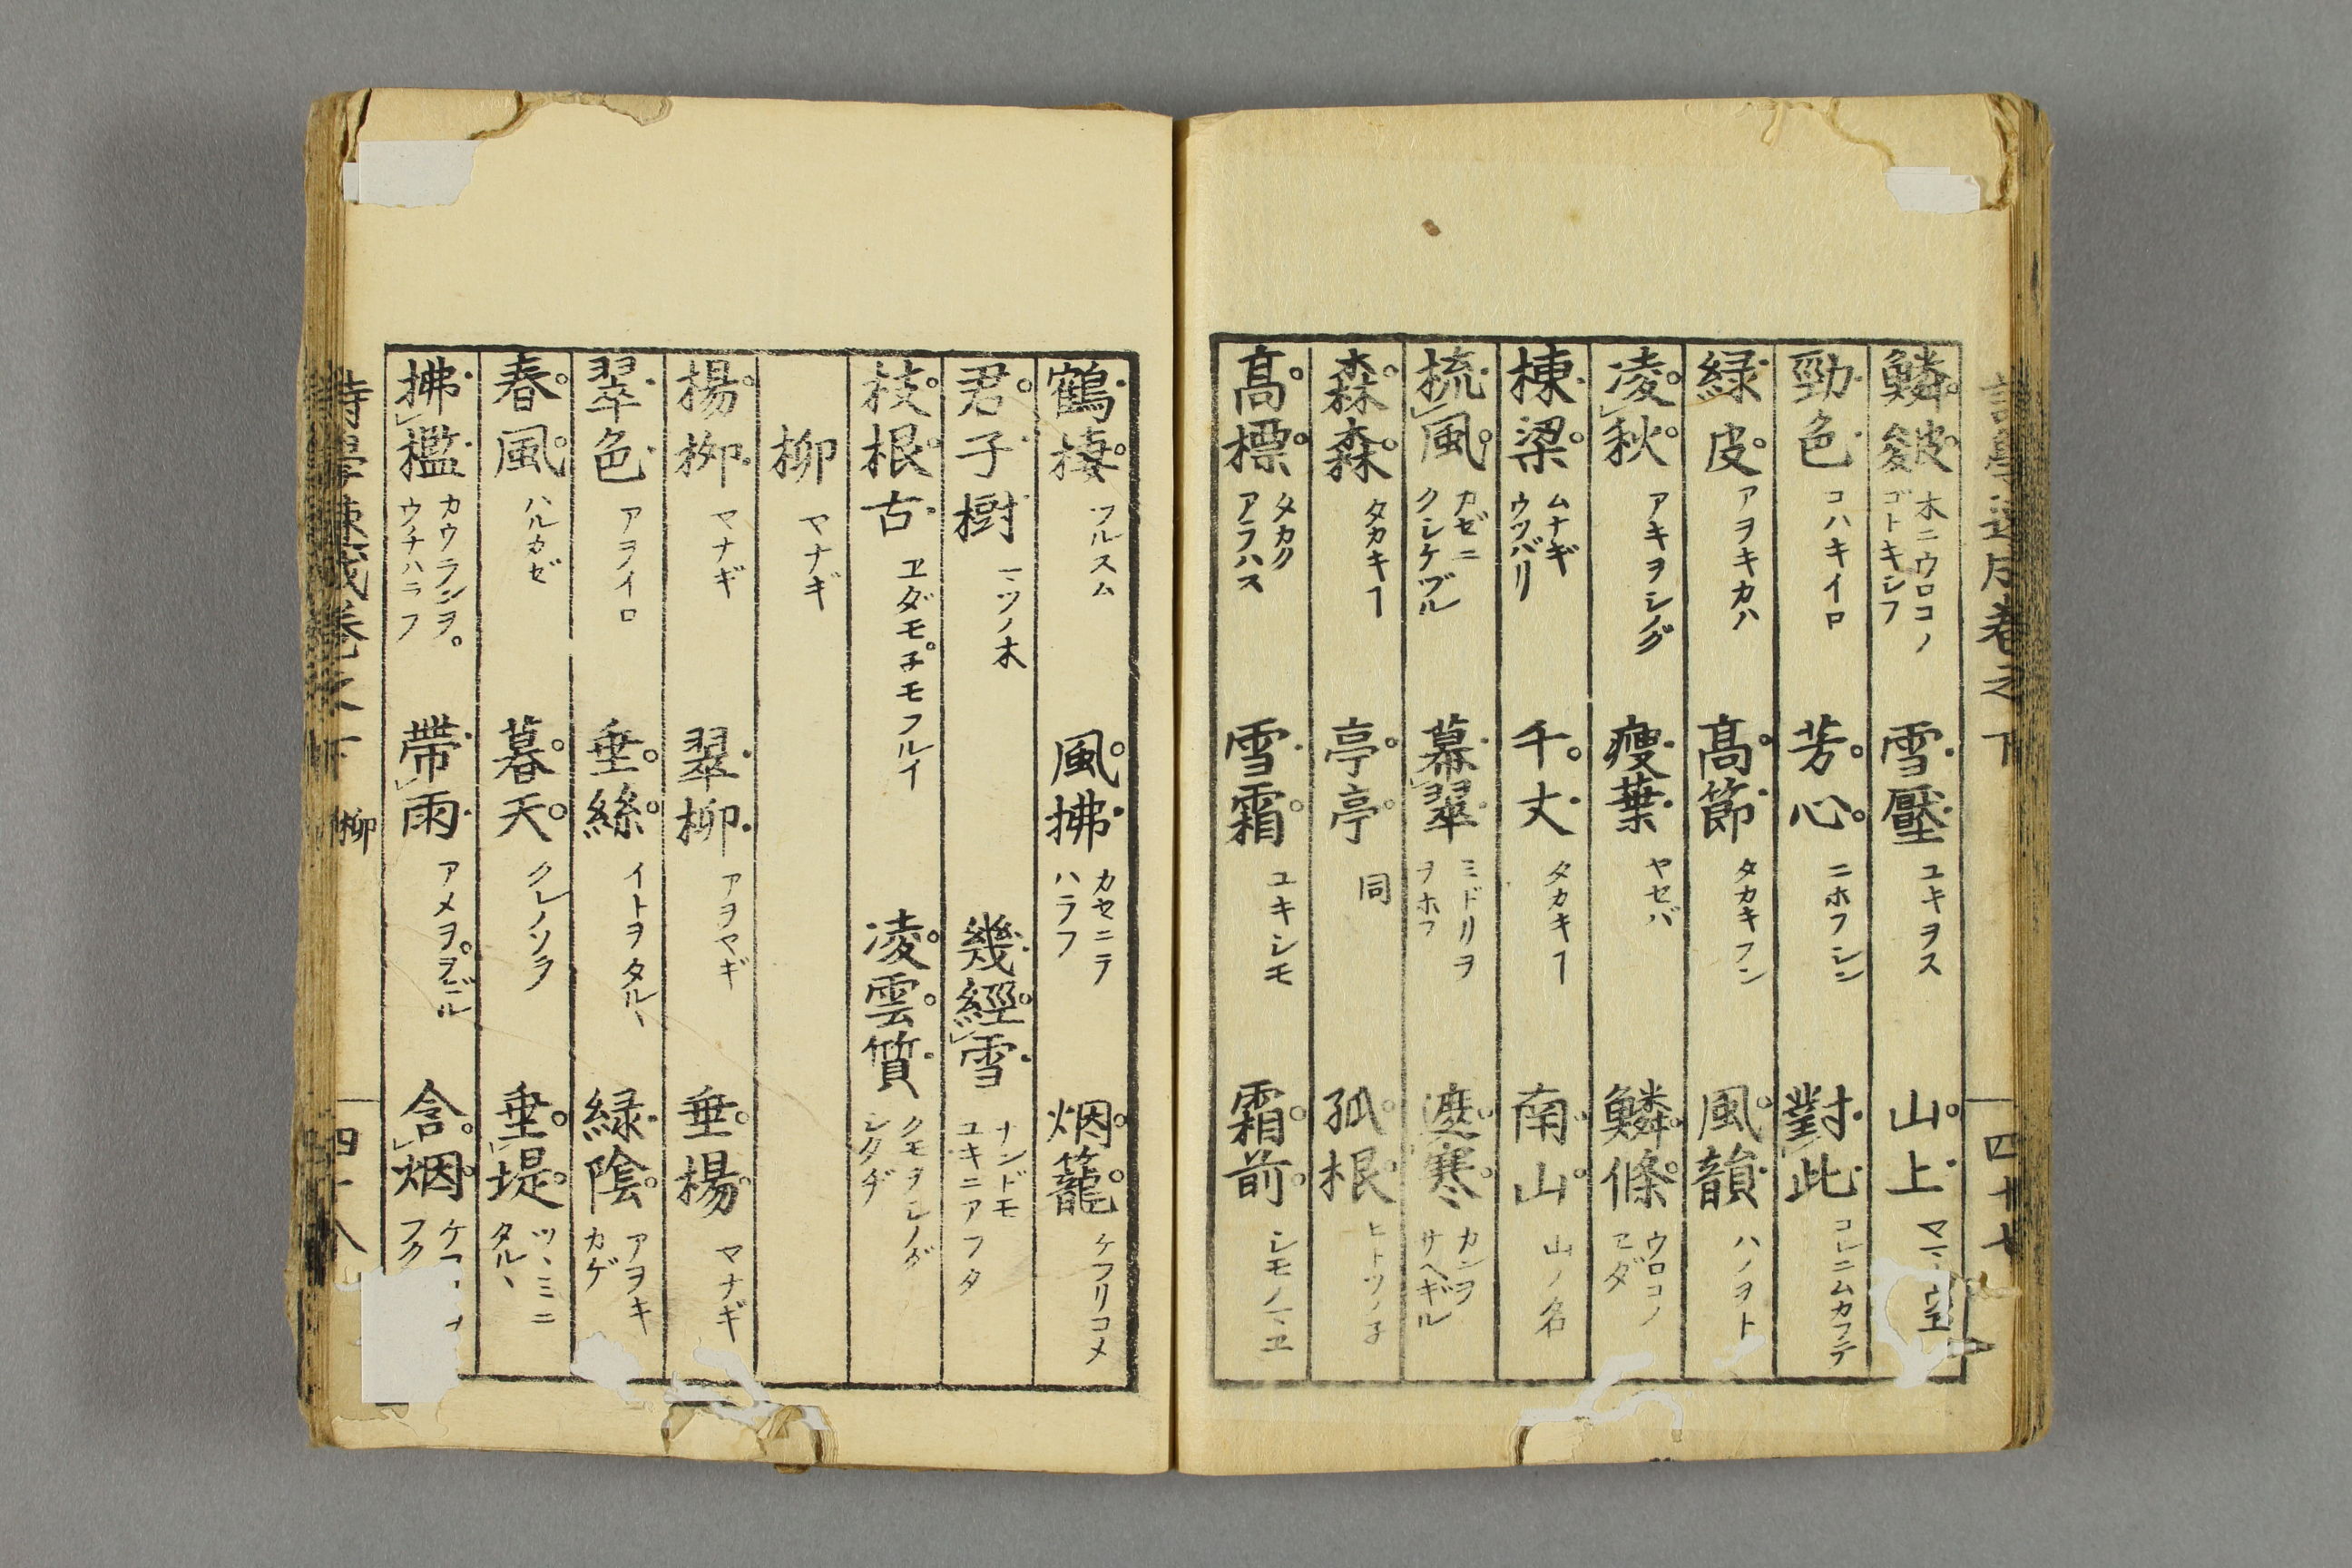 鱗皴 木ニウロコノゴトキシワ 雪壓 ユキヲス 山上
勁色 コハキイロ 芳心 ニホフシン 對此 コレニムカフテ
緑皮 アヲキカハ 髙節 タカキフシ 風韻 ハノヲト
凌秋 アキヲシノグ 瘦葉 ヤセバ 鱗條 ウロコノエダ
棟梁 ムナギウツバリ 千丈 タカキヿ 南山 山ノ名
梳風 カゼニクシケヅル 幕翠 ミドリヲヲホフ 遮寒 カンヲサヘギル
森森 タカキヿ 亭亭 同 孤根 ヒトツノ子
髙標 タカクアラハス 雪霜 ユキシモ 霜前 シモノマヱ
鶴棲 ツルスム 風拂 カセニテハラフ 烟籠 ケフリコメ
君子樹 マツノ木 幾經雪 ナンドモユキニアフタ
枝根古 ヱダモ子モフルイ 凌雲質 クモヲシノグシタヂ
柳 ヤナギ
楊柳 ヤナギ 翠柳 アヲヤギ 垂楊 ヤナギ
翠色 アヲイロ 垂絲 イトヲタルヽ 緑陰 アヲキカゲ
春風 ハルカゼ 暮天 クレノソラ 垂堤 ツヽミニタルヽ
拂檻 カウランヲウチハラフ 帶雨 アメヲヲビル 含烟
柳